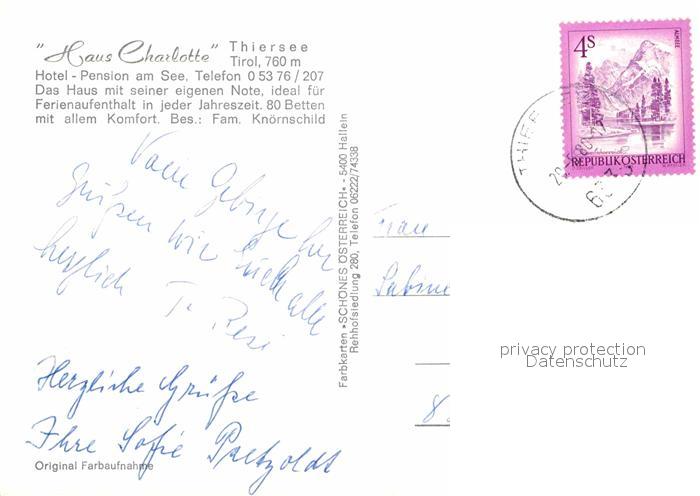 "Haus Charlotte" Thiersee
Tirol, 760 m
Hotel - Pension am See, Telefon 0 53 76 / 207
Das Haus mit seiner eigenen Note, ideal für
Ferienaufenthalt in jeder Jahreszeit. 80 Betten
mit allem Komfort. Bes.: Fam. Knörnschild
Vom Gebirge her
grüßen wir Euch alle
herzlich T. Resi
Herzliche Grüße
Ihre Sofie Paetzoldt
Original Farbaufnahme
Farbkarten »SCHÖNES ÖSTERREICH« - 5400 Hallein
Rehhofsiedlung 280, Telefon 06222/74338
ALMSEE
4 S
REPUBLIK ÖSTERREICH
THIER
Frau
Sabine
privacy protection
Datenschutz
8